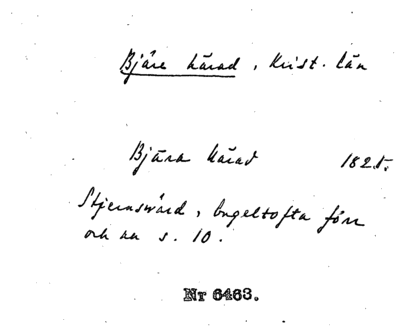 Bjäre härad, Krist. län
Bjära Härad 1825.
Stjernswärd, Engeltofta förr
och nu s. 10.
Nr 6463.